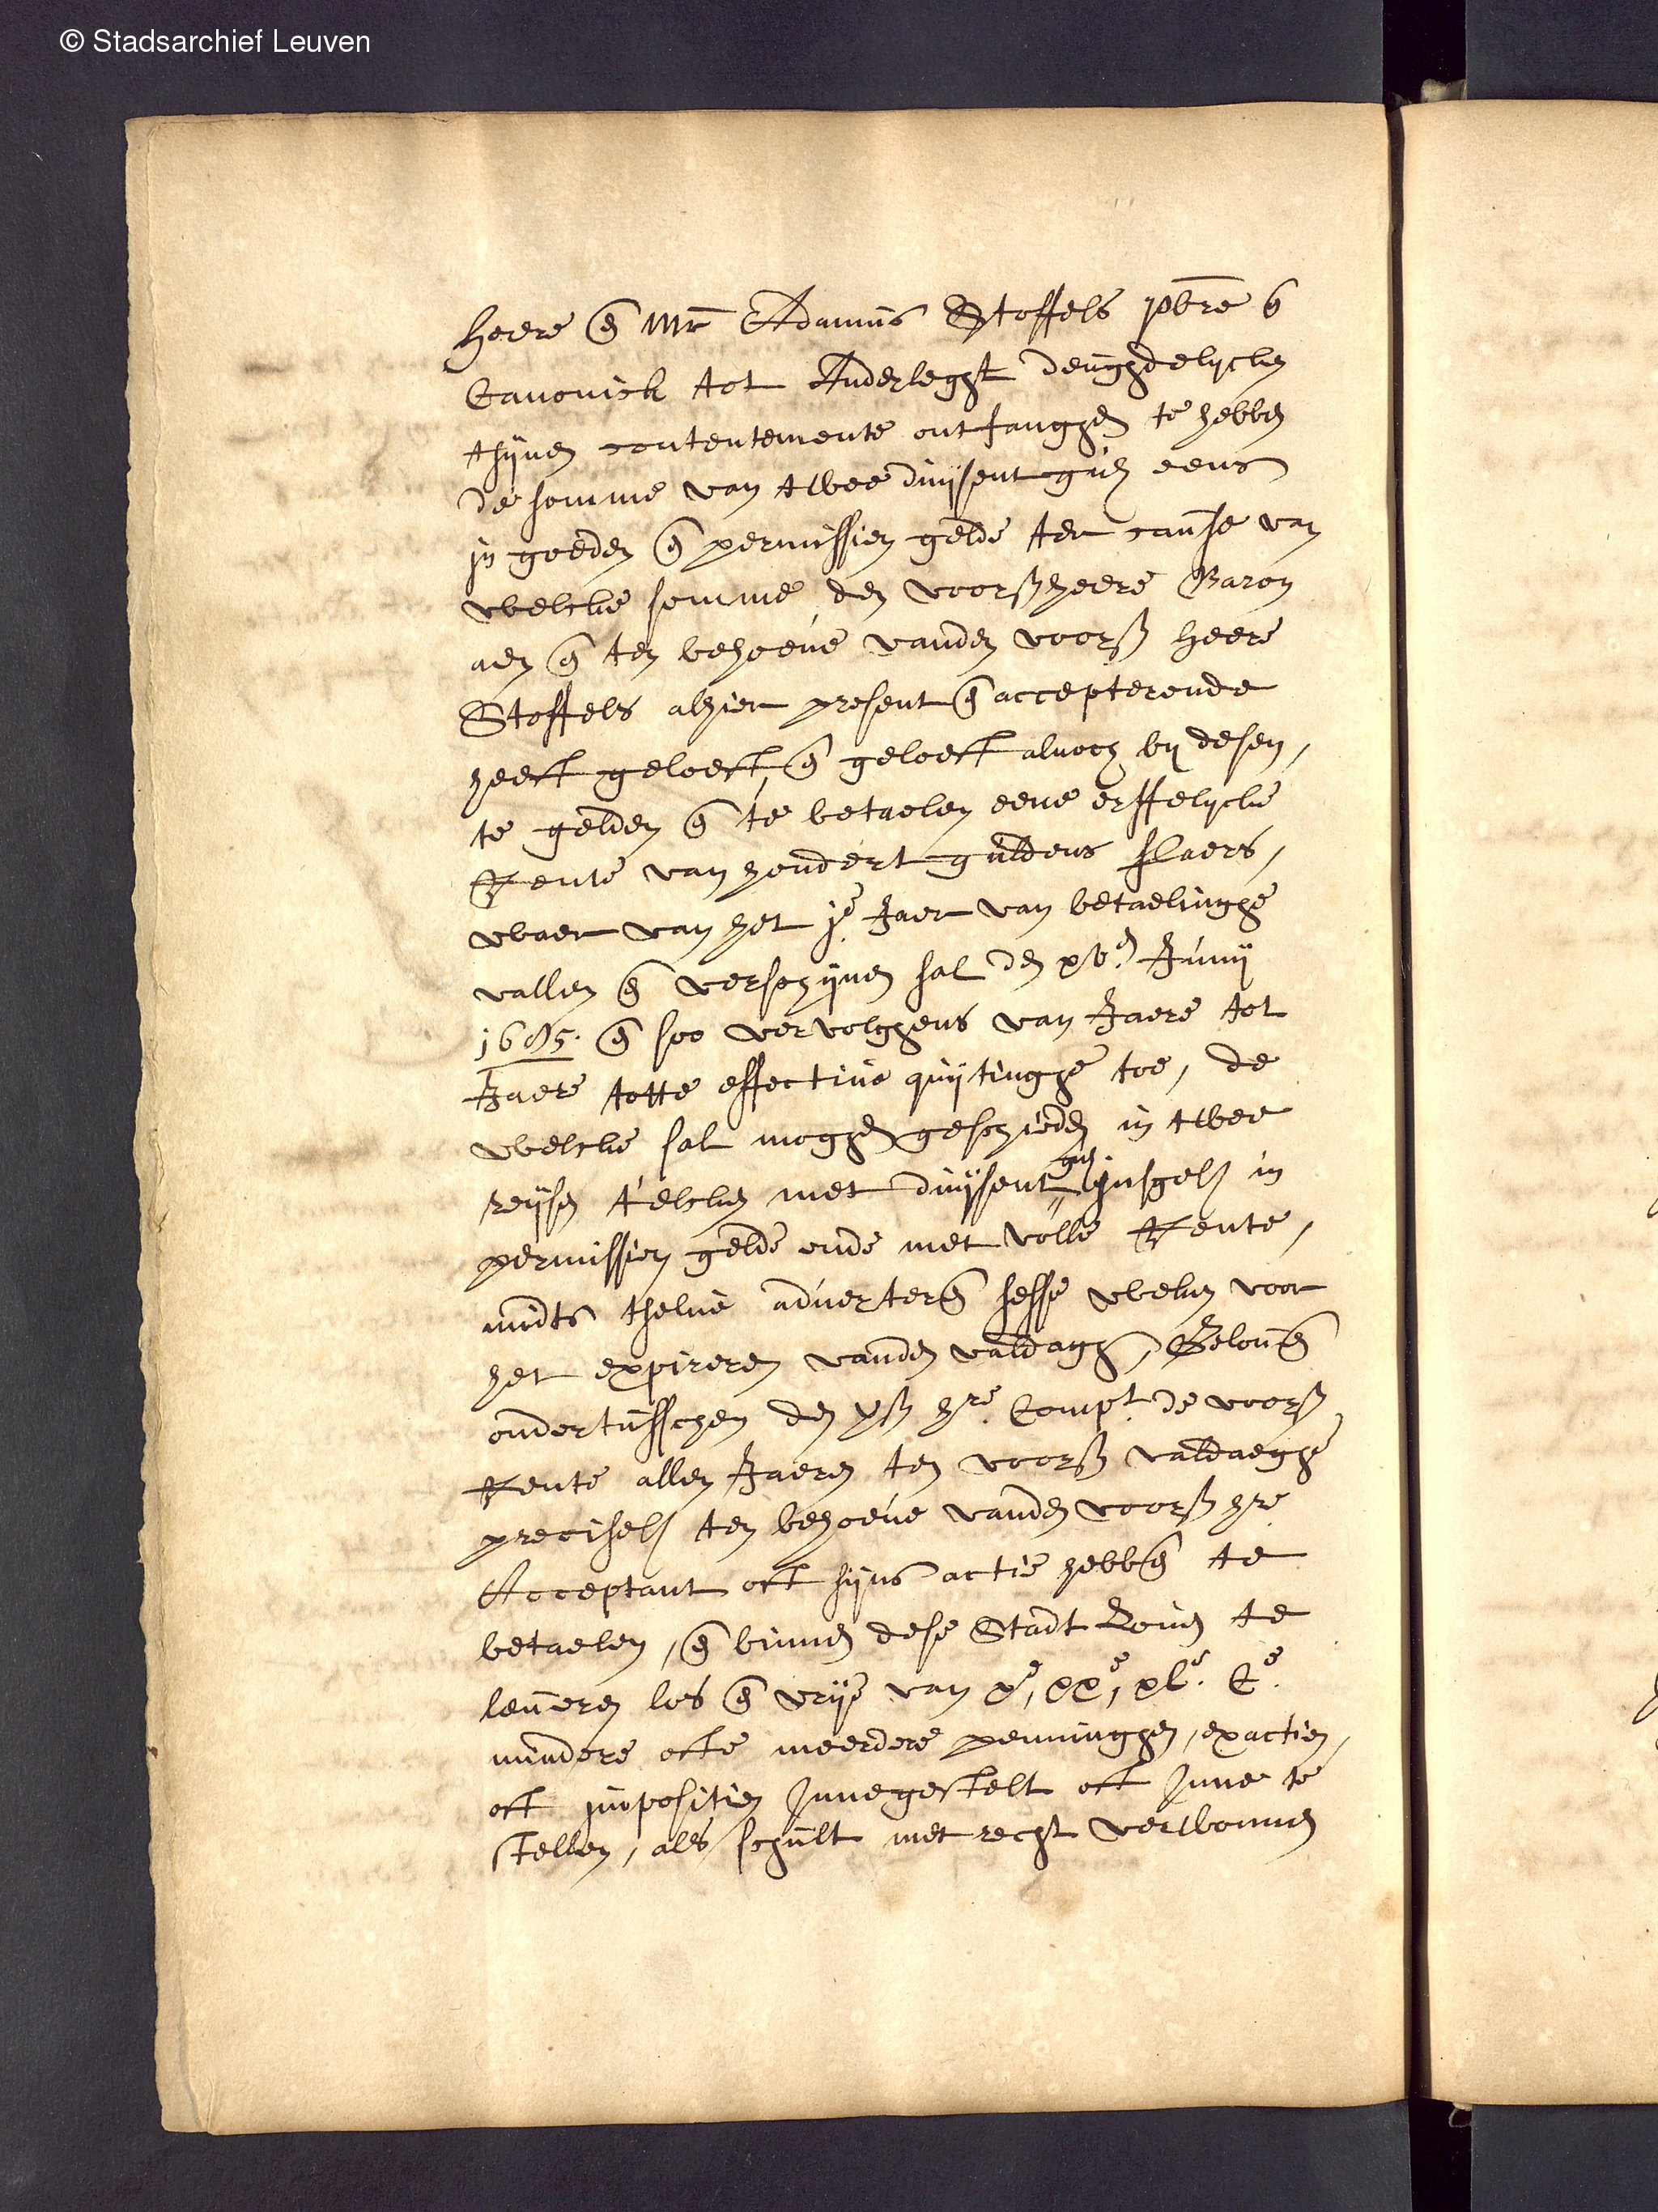 © Stadsarchief Leuven
Heere en(de) Mr Adamus Stoffels pbre e(n)
Canonick tot Anderleght deughdelycken
thijnen contentemente ontfanghen te hebben
de somme van twee duijsent guls eens
in goeden en(de) permissien gelde ter causse van
welcke somme den voors heere Baron
aen en(de) ten behoeve vanden voors heere
Stoffels alhier present en(de) accepterende
heeft geloeft, en(de) geloeft alnoch by desen,
te gelden en(de) te betaelen eene erffelycke
Rente van hondert guldens sJaers,
waer van het je Jaer van betaelinghe
vallen en(de) verschijnen sal den xven Junij
1695. en(de) soo vervolghens van Jaere tot
Jaere totte effective quijtinghe toe, de
welcke sal moghen geschieden in twee
reijsen telcken met duijsent guls insgelx in
permissien gelde ende met volle Rente,
midts thelve adverteren(de) sesse weken voor
het expireren vanden valdagh, Geloven(de)
ondertusschen den vs hre Compt de voors
Rente allen Jaeren ten voors valdaeghe
precisel ten behoeve vanden voors hre
Acceptant oft sijns actie hebben(de) te
betaelen, en(de) binnen dese Stadt Loven te
leveren los en(de) vrije van xe, xxe, xle. Ce.
mindere ofte meerdere penninghen, exactien,
oft impositien Innegestelt oft Inne te
stellen, als schult met recht verwonnen